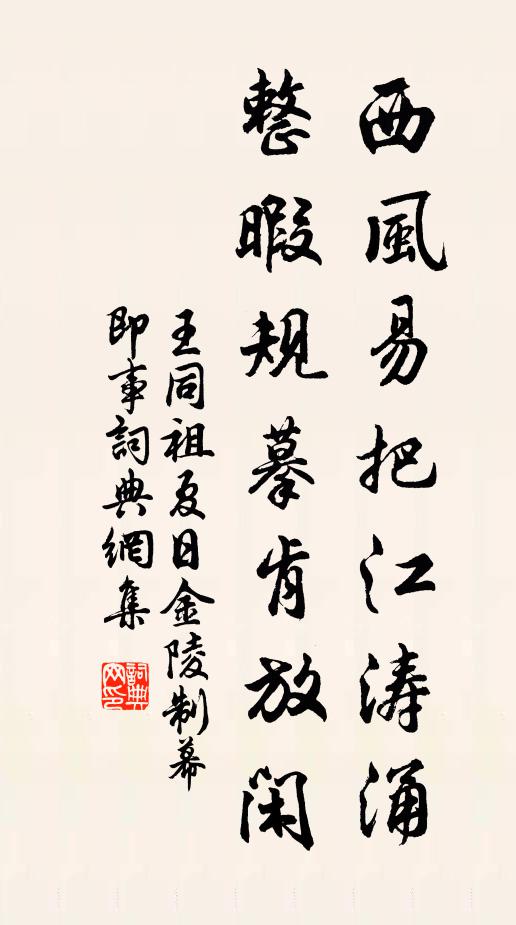 西風易把江濤涌
整暇規摹肯放闲
王同祖夏日金陵制幕
即事詞典網集
詞典网印